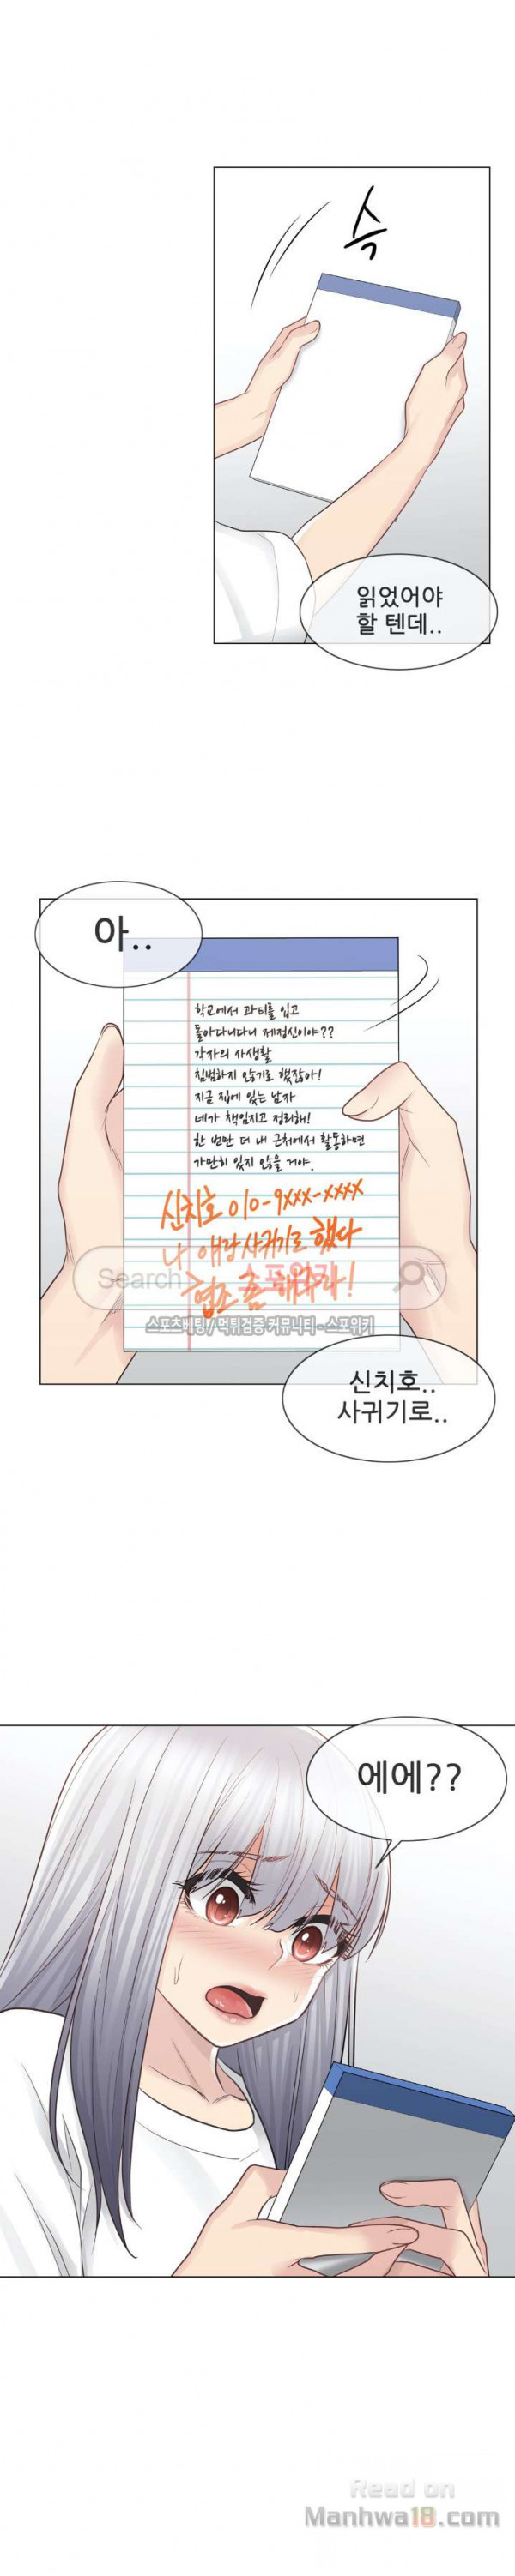 슥
읽었어야
할 텐데..
아..
학교에서 과티를 입고
돌아다니다니 제정신이야??
각자의 사생활
침범하지 않기로 했잖아!
지금 집에 있는 남자
네가 책임지고 정리해!
한 번만 더 내 근처에서 활동하면
가만히 있지 않을 거야.
신치호 010-9XXX-XXXX
나 얘랑 사귀기로 했다
Search 스포위키
협조 좀 해주라!
스포츠베팅/먹튀검증 커뮤니티 - 스포위키
신치호..
사귀기로..
에에??
Read on
Manhwa18.com